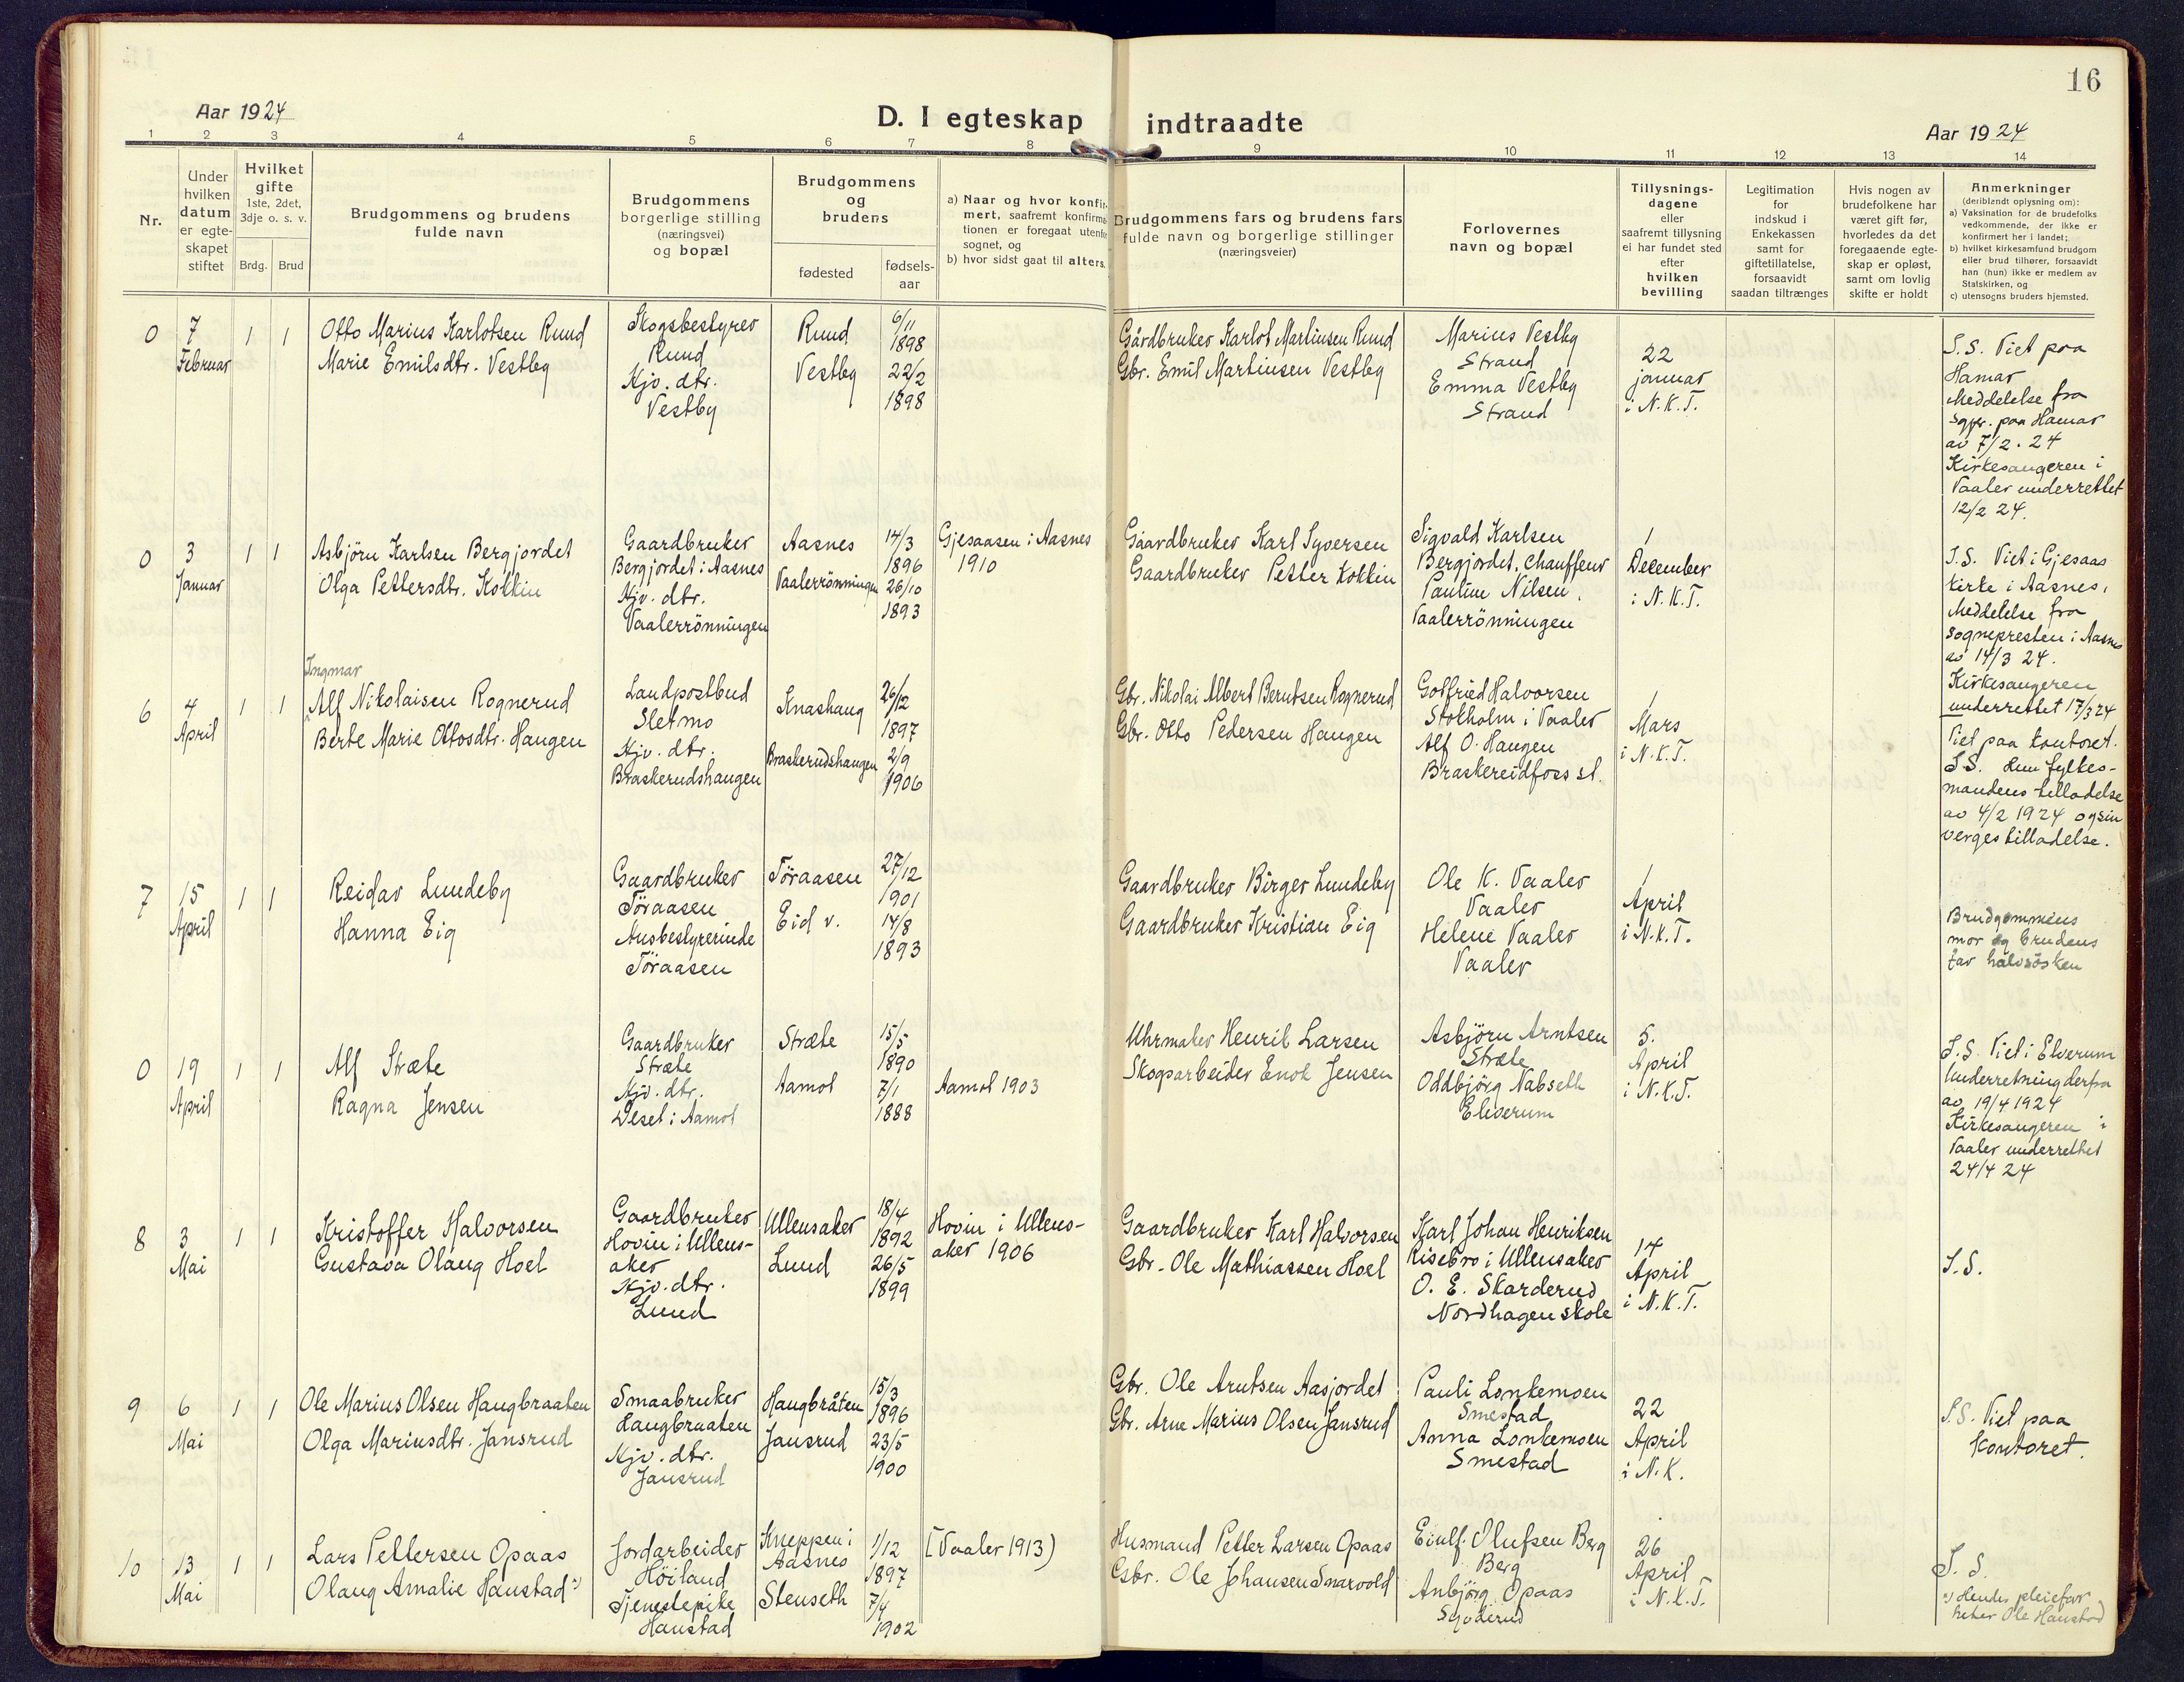 16
Aar 1924
D. I egteskap indtraadte
Aar 1924
1 2 3 4 5 6 7 8 9 10 11 12 13 14
Nr.
Under
hvilken
datum
er egte-
skapet
stiftet
Hvilket
gifte
1ste, 2det,
3dje o. s. v.
Brdg. Brud
Brudgommens og brudens
fulde navn
Brudgommens
borgerlige stilling
(næringsvei)
og bopæl
Brudgommens
og
brudens
fødested
fødsels-
aar
a) Naar og hvor konfir-
mert, saafremt konfirma-
tionen er foregaat utenfor
sognet, og
b) hvor sidst gaat til alters.
Brudgommens fars og brudens fars
fulde navn og borgerlige stillinger
(næringsveier)
Forlovernes
navn og bopæl
Tillysnings-
dagene
eller
saafremt tillysning
ei har fundet sted
efter
hvilken
bevilling
Legitimation
for
indskud i
Enkekassen
samt for
giftetillatelse,
forsaavidt
saadan tiltrænges
Hvis nogen av
brudefolkene har
været gift før,
hvorledes da det
foregaaende egte-
skap er opløst,
samt om lovlig
skifte er holdt
Anmerkninger
(deriblandt oplysning om):
a) Vaksination for de brudefolks
vedkommende, der ikke er
konfirmert her i landet;
b) hvilket kirkesamfund brudgom
eller brud tilhører, forsaavidt
han (hun) ikke er medlem av
Statskirken, og
c) utensogns bruders hjemsted.
0
7
Februar
1 1
Otto Marius Karlotsen Rund
Marie Emilsdtr. Vestby
Skogsbestyrer
Rund
Hjv. dtr.
Vestby
Rund
Vestby
6/11
1898
22/2
1898
Gårdbruker Karlot Martinsen Rund
Gbr. Emil Martinsen Vestby
Marius Vestby
Strand
Emma Vestby
Strand
22
januar
i N.K.T.
S.S. Viet paa
Hamar
Meddelelse fra
sgpr. paa Hamar
av 7/2. 24
Kirkesangeren i
Vaaler underrettet
12/2 24.
0
3
Januar
1 1
Asbjörn Karlsen Bergjordet
Olga Pettersdtr. Kokkin
Gaardbruker
Bergjordet i Aasnes
Hjv. dtr.
Vaalerrönningen
Aasnes
Vaalerrönningen
14/3
1896
26/10
1893
Gjesaasen i Aasnes
1910
Gaardbruker Karl Syversen
Gaardbruker Petter Kokkin
Sigvald Karlsen
Bergjordet, Chauffeur
Pauline Nilsen,
Vaalerrönningen
1
December
i N.K.T.
S.S. Viet i Gjesaas
kirke i Aasnes,
Meddelelse fra
sognepresten i Aasnes
av 14/3 24.
Kirkesangeren
underrettet 17/3 24
6
4
April
1 1
Ingmar
Alf Nikolaisen Rognerud
Berte Marie Ottosdtr. Haugen
Landpostbud
Sletmo
Hjv. dtr.
Braskerudshaugen
Knashaug
Braskerudshaugen
26/12
1897
2/9
1906
Gbr. Nikolai Albert Berntsen Rognerud
Gbr. Otto Pedersen Haugen
Gotfried Halvorsen
Stokholm i Vaaler
Alf O. Haugen
Braskereidfoss st.
1
Mars
i N.K.T.
Viet paa kontoret.
S.S. Hun fylkes-
mandens tilladelse
av 4/2 1924 og sin
verges tilladelse.
7
15
April
1 1
Reidar Lundeby
Hanna Eig
Gaardbruker
Töraasen
Husbestyrerinde
Töraasen
Töraasen
Eid v.
27/12
1901
14/8
1893
Gaardbruker Birger Lundeby
Gaardbruker Kristian Eig
Ole K. Vaaler
Vaaler
Helene Vaaler
Vaaler
1
April
i N.K.T.
Brudgommens
mor og brudens
far halvsösken
0
19
April
1 1
Alf Stræte
Ragna Jensen
Gaardbruker
Stræte
Hjv. dtr.
Deset i Aamot
Stræte
Aamot
15/5
1890
7/1
1888
Aamot 1903
Uhrmaker Henrik Larsen
Skogsarbeider Enok Jensen
Asbjörn Arntsen
Stræte
Oddbjörg Nabseth
Elverum
5.
April
i N.K.T.
S.S. Viet i Elverum
Underretning derfra
av 19/4 1924
Kirkesangeren i
Vaaler underrettet
24/4 24
8
3
Mai
1 1
Kristoffer Halvorsen
Gustava Olaug Hoel
Gaardbruker
Hovin i Ullens-
aker
Hjv. dtr.
Lund
Ullensaker
Lund
18/4
1892
26/5
1899
Hovin i Ullens-
aker 1906
Gaardbruker Karl Halvorsen
Gbr. Ole Mathiassen Hoel
Karl Johan Henriksen
Risebro i Ullensaker
O. E. Skarderud
Nordhagen skole
14
April
i N.K.T.
S.S.
9
6
Mai
1 1
Ole Marius Olsen Haugbraaten
Olga Mariusdtr. Jansrud
Smaabruker
Haugbraaten
Hjv. dtr.
Jansrud
Haugbråten
Jansrud
15/3
1896
23/5
1900
Gbr. Ole Arntsen Aasjordet
Gbr. Arne Marius Olsen Jansrud
Pauli Lonkemoen
Smestad
Anna Lonkemoen
Smestad
22
April
i N.K.
S.S. Viet paa
Kontoret.
10
13
Mai
1 1
Lars Pettersen Opaas
Olaug Amalie Haustad x)
Jordarbeider
Höiland
Tjenestepike
Haustad
Kneppen i
Aasnes
Stenseth
1/12
1897
7/4
1902
[Vaaler 1913)
Husmand Petter Larsen Opaas
Gbr. Ole Johansen Snarvold
Einulf Olufsen Berg
Berg
Anbjörg Opaas
26
April
i N.K.T.
S.S.
x) Hendes pleiefar
heter Ole Haustad